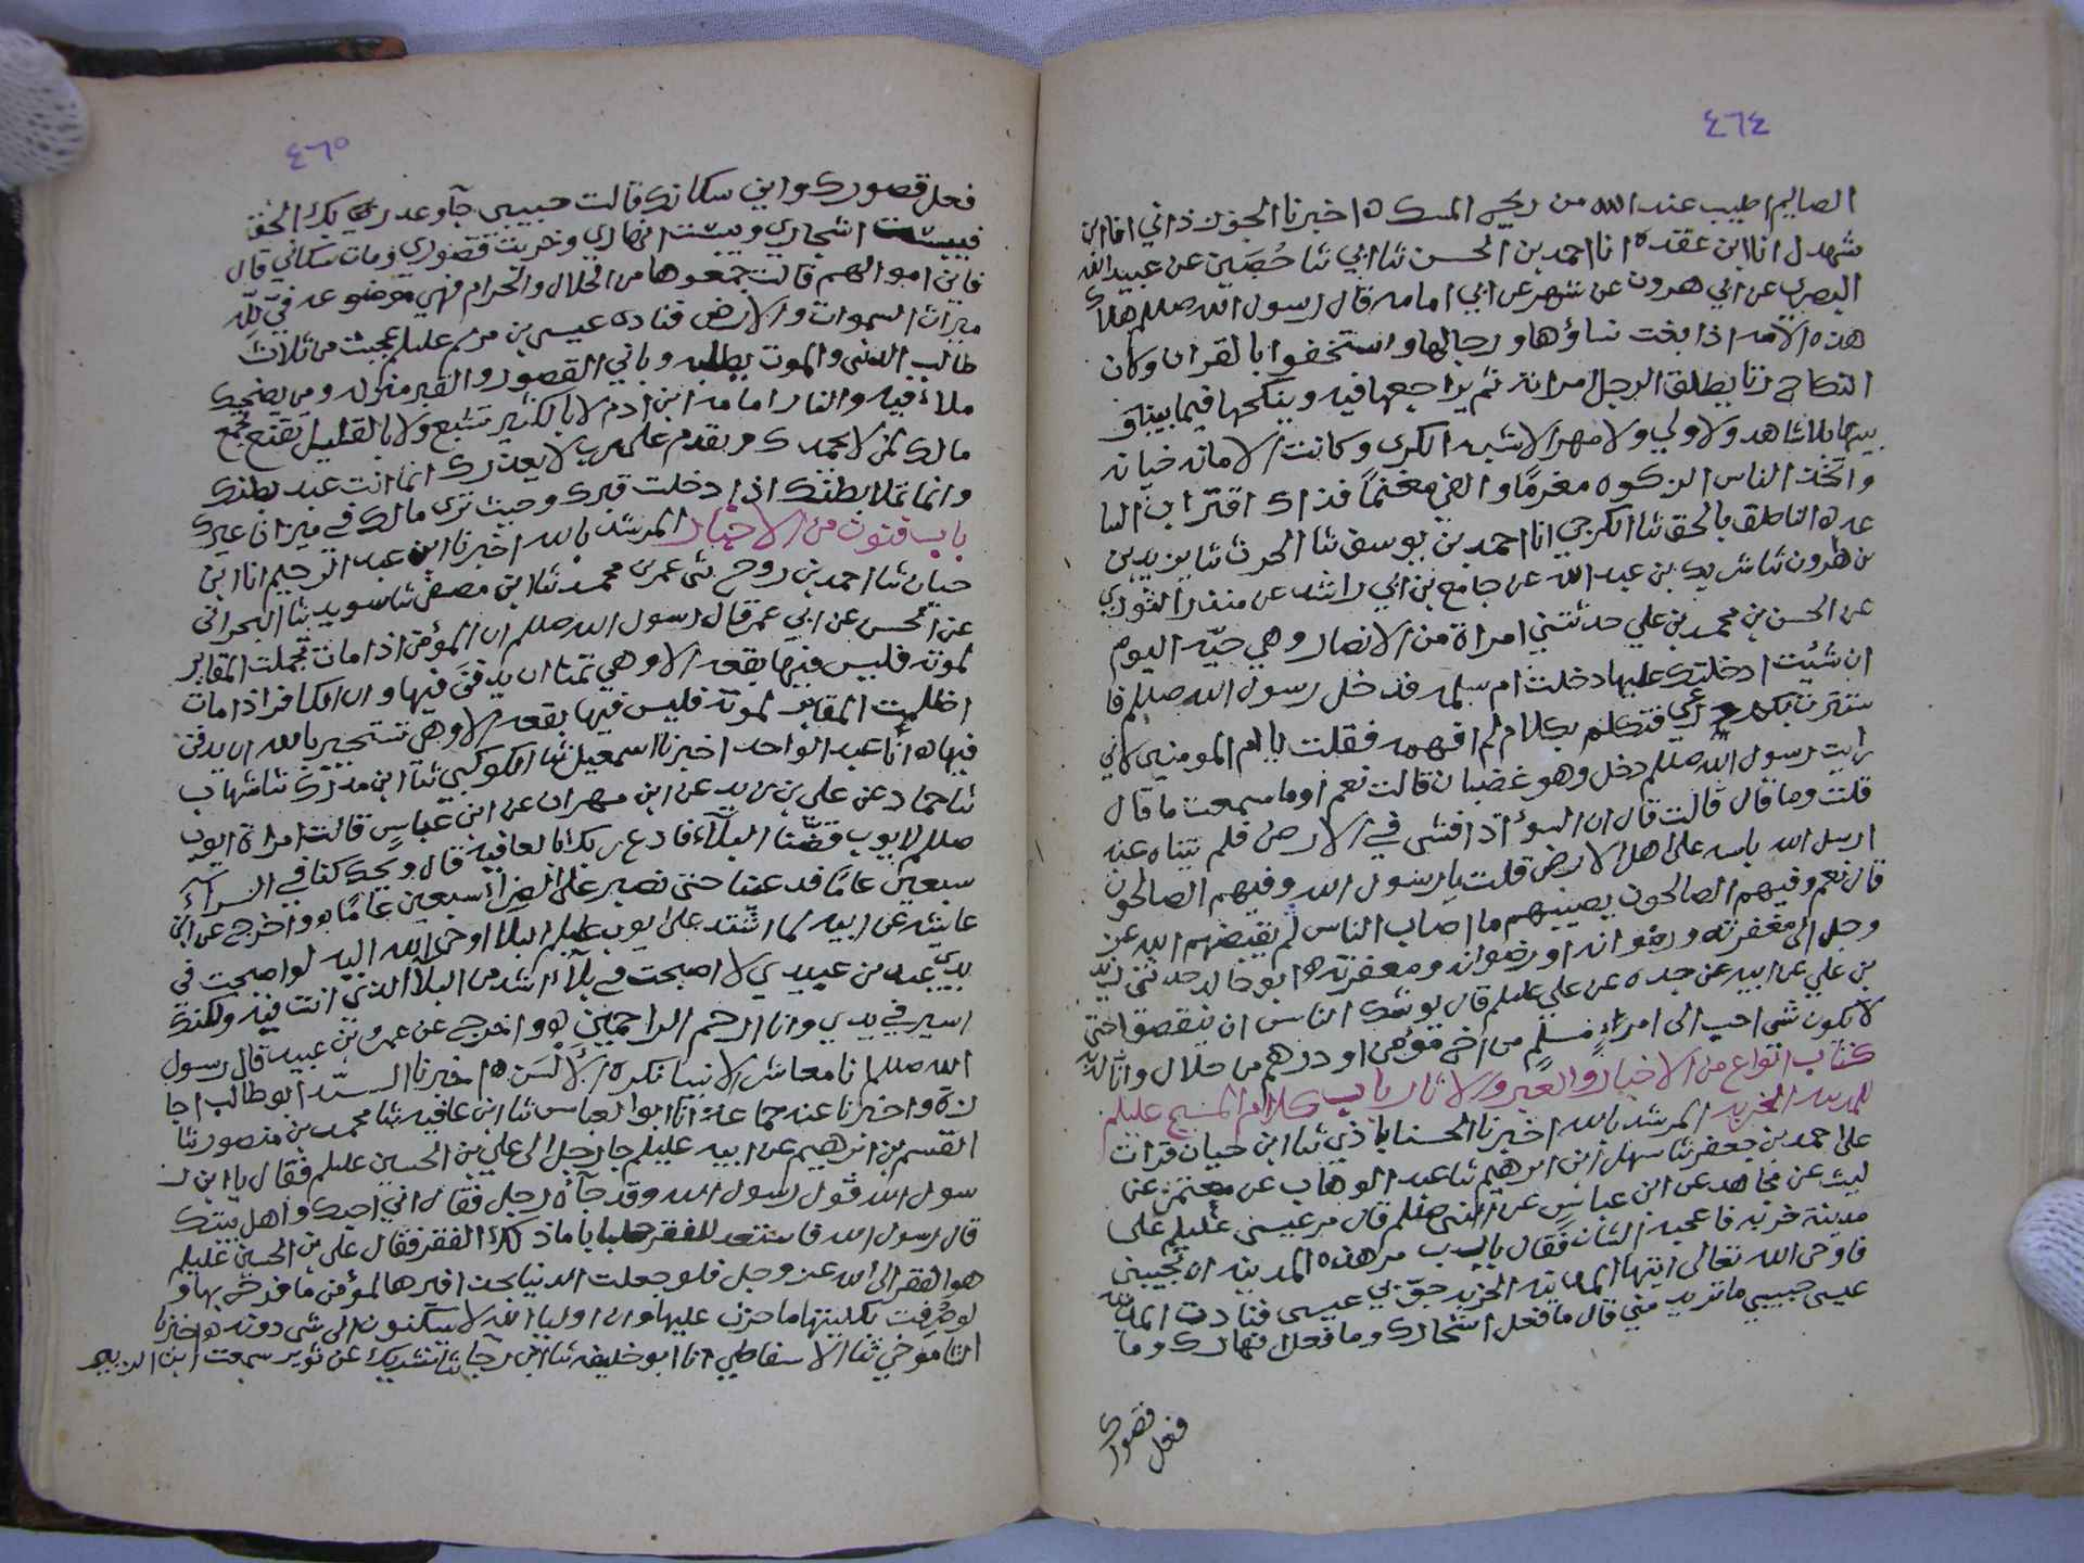 ٤٦٤
الصايم اطيب عند الله من ريح المسك ه اخبرنا الجوزذاني انا ابن
شهدل انا ابن عقده ه انا احمد بن الحسن ثنا ابي ثنا حُصَين عن عبيد الله
البصري عن ابي هرون عن شهر عن ابي امامه قال رسول الله صللم هلاك
هذه الامه اذا بغت نساؤها ورجالها واستخفوا بالقران وكان
النكاح زنا يطلق الرجل امراته ثم يراجعها فيه وينكحها فيما بينه و
بينها بلا شاهد ولا ولي ولا مهر الا شبه الكرى وكانت الامانه خيانه
واتخذ الناس الزكوه مغرمًا والفي مغنمًا فذاك اقتراب السا
عه ه الناطق بالحق ثنا الكرجي انا احمد بن يوسف ثنا الحرث ثنا يزيد بن
بن هرون ثنا شريك بن عبد الله عن جامع بن ابي راشد عن منذر الثوري
عن الحسن بن محمد بن علي حدثتني امراة من الانصار وهي حيّه اليوم
ان شئت ادخلتك عليها دخلت ام سلمه فدخل رسول الله صللم فا
ستترت بكم درعي فتكلم بكلام لم افهمه فقلت يا ام المومنين لاني
رايت رسول الله صللم دخل وهو غضبان قالت نعم اوما سمعت ما قال
قلت وما قال قالت قال ان السوٓء اذا فشى في الارض فلم يتناه عنه
ارسل الله باسه على اهل الارض قلت يا رسول الله وفيهم الصالحون
قال نعم وفيهم الصالحون يصيبهم ما اصاب الناس ثم يقبضهم الله عز
وجل الى مغفرته ورضوانه او رضوانه ومغفرته ه ابو خالد حدثني زيد
بن علي عن ابيه عن جده عن علي عليلم قال يوشك الناس ان ينقصوا حتى
لا يكون شي احب الى امرءٍ مُسلمٍ من اخٍ مؤمن او درهم من حلال وانا له
كتاب انواع من الاخبار والعِبر والاثار باب كلام المسيح عليلم
للمدينه الخربه المرشد بالله اخبرنا الحسناباذي ثنا ابن حيان قرات
على احمد بن جعفر ثنا سهل ابن ابرهيم ثنا عبد الوهاب عن معتمر عن
ليث عن مجاهد عن ابن عباس عن النبي صللم قال مر عيسى عليلم على
مدينة خربه فاعجبه الشان فقال يا رب مر هذه المدينه ان تجيبني
فاوحى الله تعالى ايتها المدينه الخربه جوبي عيسى فنادت المدينه
عيسى حبيبي ما تريد مني قال ما فعل اشجارك وما فعل انهارك وما
فعل قصورك
٤٦٥
فعل قصورك واين سكانك قالت حبيبي جآ وعد ربك الحق
فيبست اشجاري ويبست انهاري وخربت قصوري ومات سكاني قال
فاين اموالهم قالت جمعوها من الحلال والحرام فهي موضوعه فيّ لله
ميراث السموات والارض فناده عيسى بن مريم عليلم عجبت من ثلاث
طالب الدنيى والموت يطلبه وباني القصور والقبر منزله ومن يضحك
ملاء فيه والنار امامه ابن ادم لا بالكثير تشبع ولا بالقليل تقنع تجمع
مالك لمن لا يحمدك وتقدم على رب لا يعذرك انما انت عبد بطنك
وانما تملا بطنك اذا دخلت قبرك وحيث ترى مالك في ميزان غيرك
باب فنون من الاخبار المرشد بالله اخبرنا ابن عبد الرحيم انا ابن
حيان ثنا احمد بن روح ثنى عمر بن محمد ثنا ابن مصفى ثنا سويد ثنا البحراني
عن الحسن عن ابي عمر قال رسول الله صللم ان المؤمن اذا مات تجملت المقابر
لموته فليس فيها بقعه الا وهي تتمنا ان يدفن فيها وان الكافر اذا مات
اظلمت المقابر لموته فليس فيها بقعه الا وهي تستجير بالله ان يدفن
فيها ه انا عبد الواحد اخبرنا اسمعيل ثنا الكوكبي ثنا ابن مدرك ثنا شهاب
ثنا حماد عن علي بن زيد عن ابن مهران عن ابن عباس قالت امراة ايوب
صللم لايوب قضّنا البلآء فادع ربك بالعافيه قال ويحك كنا في السرآء
سبعين عامًا فدعينا حتى نصير على الضرآ سبعين عامًا ه واخرج عن ابن
عايشه عن ابيه لما اشتد على ايوب عليلم البلا اوحى الله اليه لو اصبحت في
يدي عبد من عبيدي لاصبحت في بلآء اشد من البلآ الذي انت فيه ولكنك
اسير في يدي وانا ارحم الراحمين ه واخرج عن عمرو بن عبيد قال رسول
الله صللم انا معاشر الانبيا نكره الألْسَن ه اخبرنا السيد ابو طالب اجا
زة واخبرنا عنه جماعة انا ابو العباس ثنا ابن عافيه ثنا محمد بن منصور ثنا
القسم بن ابرهيم عن ابيه عليلم جا رجل الى علي بن الحسين عليلم فقال يا ابن ر
سول الله قول رسول الله وقد جآه رجل فقال اني احبك واهل بيتك
قال رسول الله فاستعد للفقر جلبابا ما ذلك الفقر فقال علي بن الحسين عليلم
هو الفقر الى الله عز وجل فلو جعلت الدنيا بحذافيرها لمؤمن ما فرح بها و
لو صُرفت بكليتها ما حزن عليها وان اوليا الله لا يسكنون الى شي دونه ه اخبرنا
التاموخي ثنا الاسفاطي انا ابو خليفه ثنا ابن رجآ ثنا شريك عن ثوير سمعت ابن الزبير